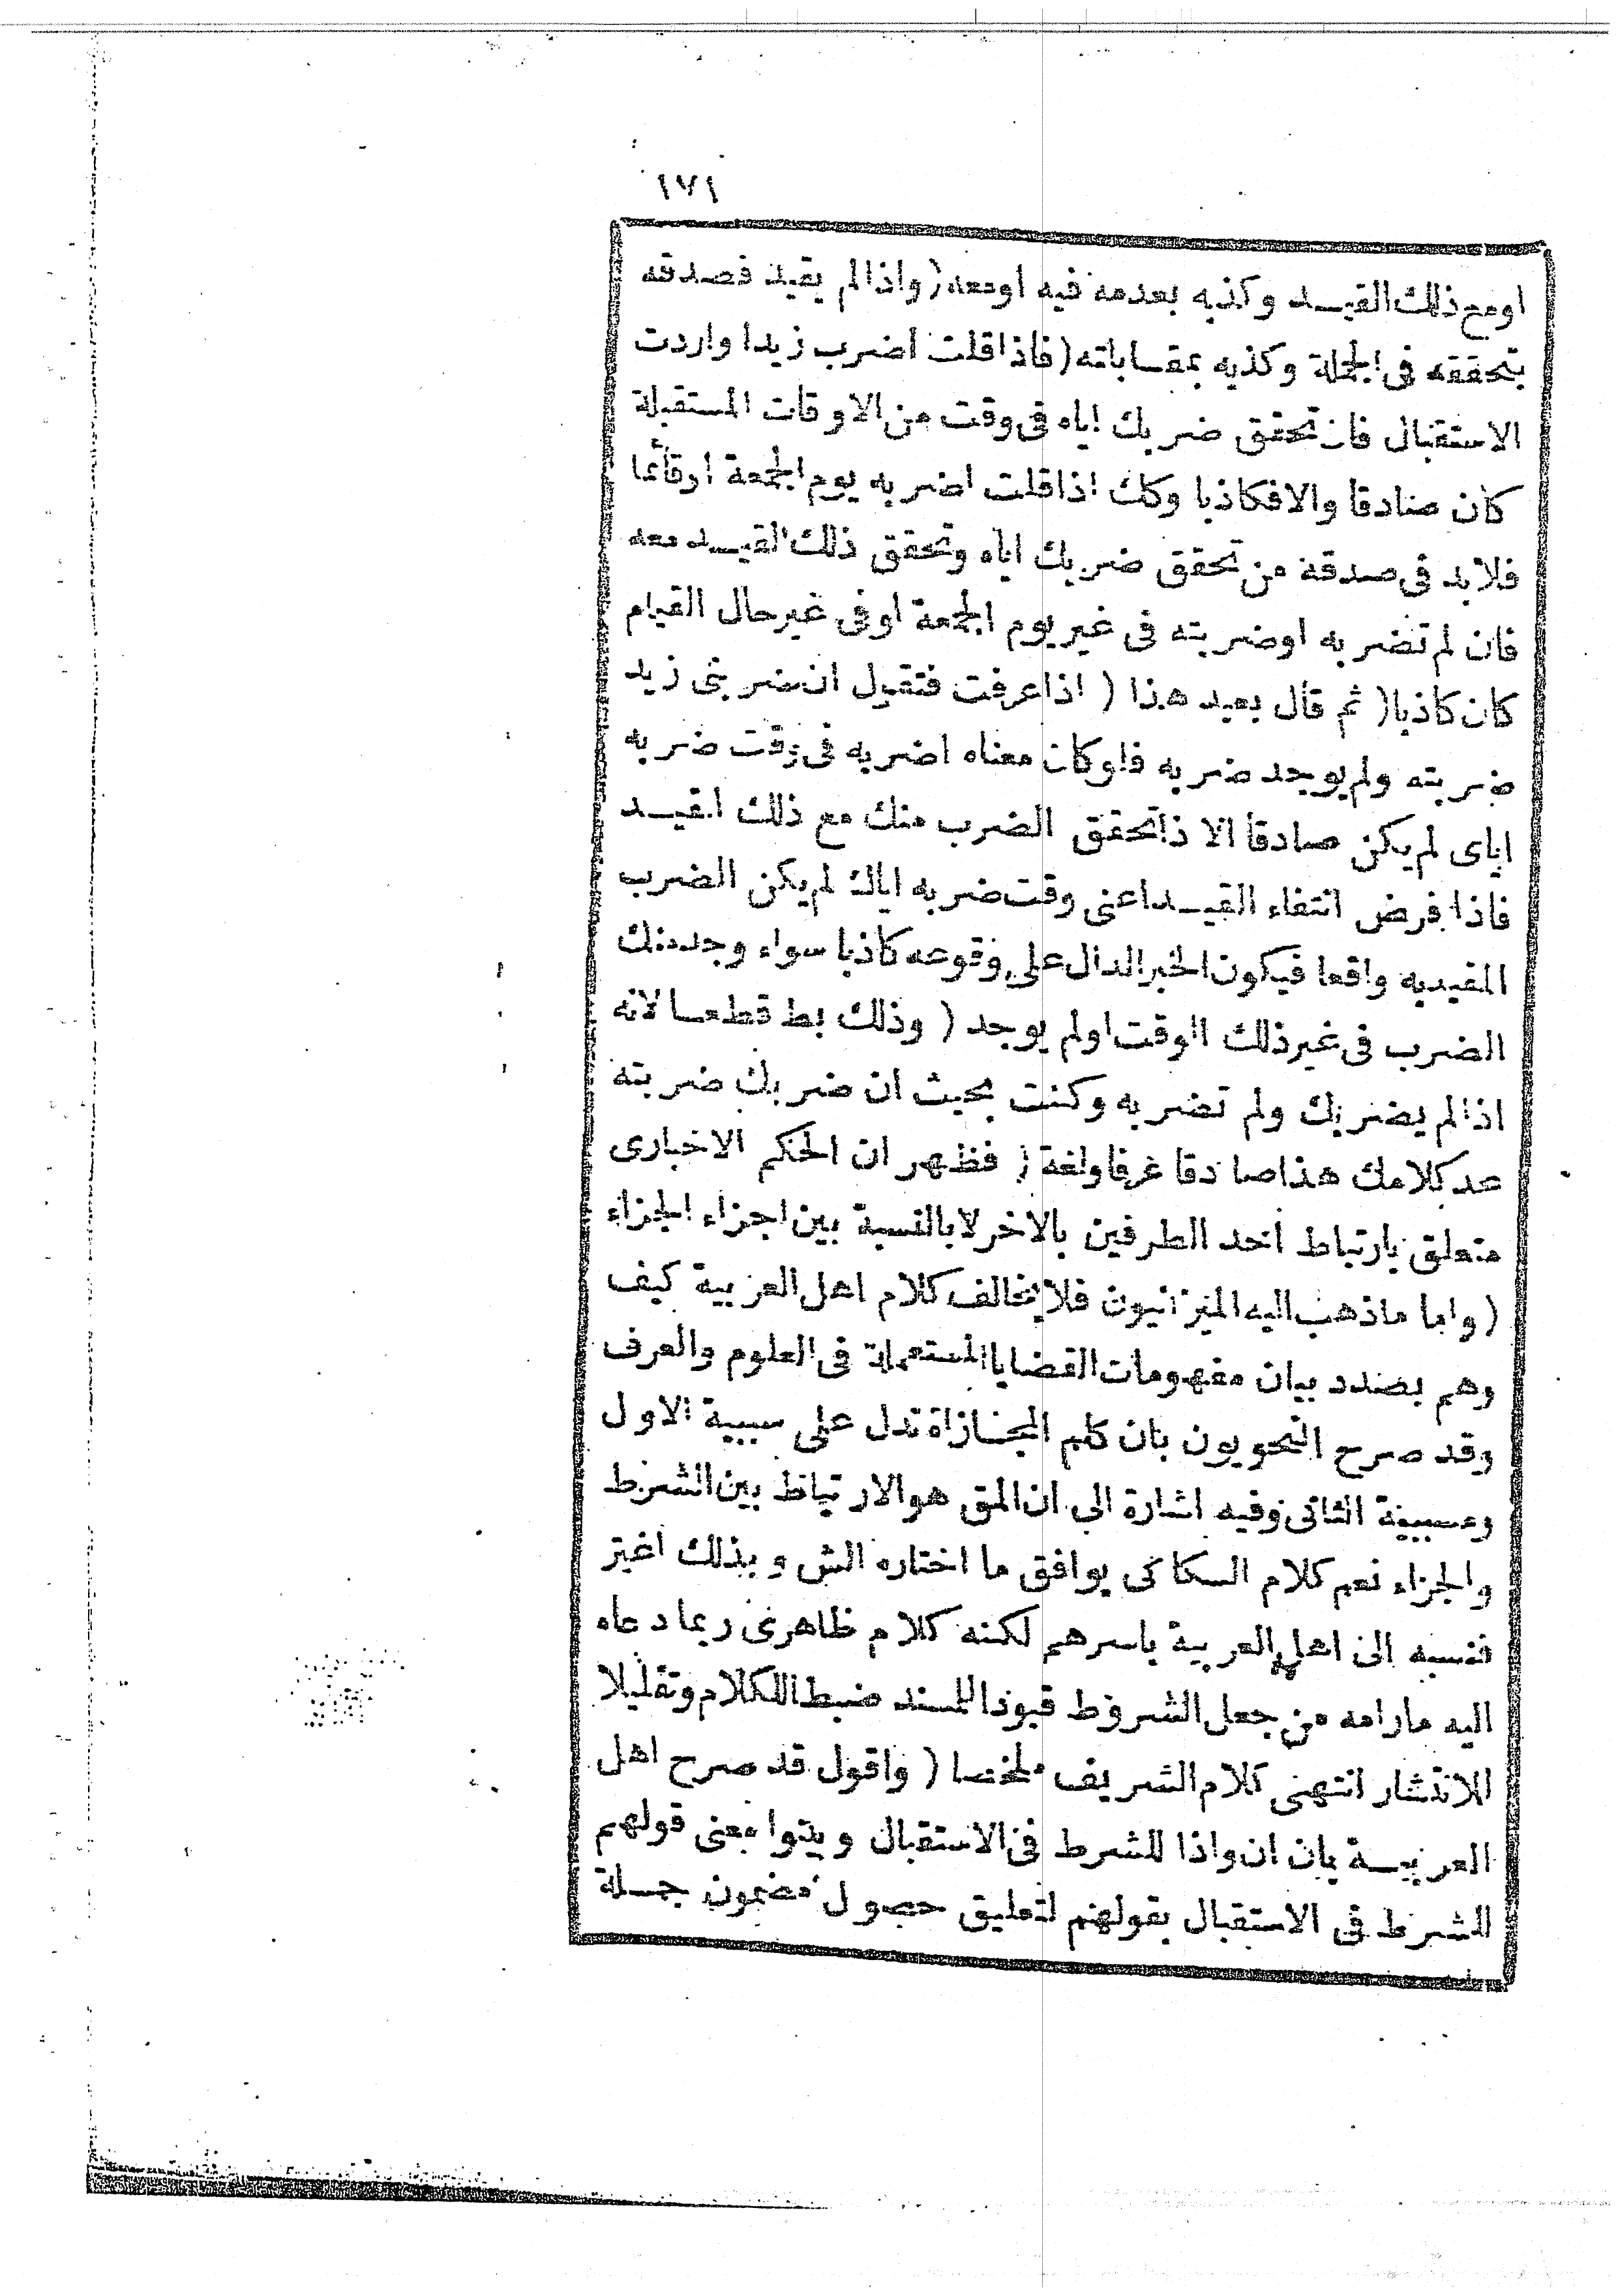 ١٧١
او مع ذلك القيد وكذبه بعدمه فيه او معه ( واذا لم يقيد فصدقه
بتحققه فى الجملة وكذبه بمقساباته ( فاذا قلت اضرب زيدا واردت
الاستقبال فان تحقق ضربك اياه فى وقت من الاوقات المستقبلة
كان صادقا والا فكاذبا وكك اذا قلت اضربه يوم الجمعة او قائما
فلابد فى صدقه من تحقق ضربك اياه وتحقق ذلك القيد معه
فان لم تضربه او ضربته فى غير يوم الجمعة او فى غير حال القيام
كان كاذبا ( ثم قال بعيد هذا ( اذا عرفت فنقول ان ضربنى زيد
ضربته ولم يوجد ضربه فلو كان معناه اضربه فى وقت ضربه
اياى لم يكن صادقا الا اذا تحقق الضرب منك مع ذلك القيد
فاذا فرض انتفاء القيد اعنى وقت ضربه اياك لم يكن الضرب
المقيد به واقعا فيكون الخبر الدال على وقوعه كاذبا سواء وجد منك
الضرب فى غير ذلك الوقت او لم يوجد ( وذلك بط قطعا لانه
اذا لم يضربك ولم تضربه وكنت بحيث ان ضربك ضربته
عد كلامك هذا صادقا عرفا ولغة ( فظهر ان الحكم الاخبارى
متعلق بارتباط احد الطرفين بالاخر لا بالنسبة بين اجزاء الجزاء
( واما ما ذهب اليه الميزانيون فلا يخالف كلام اهل العربية كيف
وهم بصدد بيان مفهومات القضايا المستعملة فى العلوم والعرف
وقد صرح النحويون بان كلم المجازاة تدل على سببية الاول
ومسببية الثانى وفيه اشارة الى ان المق هو الارتباط بين الشرط
والجزاء نعم كلام السكاكى يوافق ما اختاره الش وبذلك اغتر
فنسبه الى اهل العربية باسرهم لكنه كلام ظاهرى ربما دعاه
اليه مارامه من جعل الشروط قيودا للمسند ضبطا للكلام وتقليلا
للانتشار انتهى كلام الشريف ملخصا ( واقول قد صرح اهل
العربية بان ان واذا للشرط فى الاستقبال وبينوا معنى قولهم
للشرط فى الاستقبال بقولهم لتعليق حصول مضمون جملة